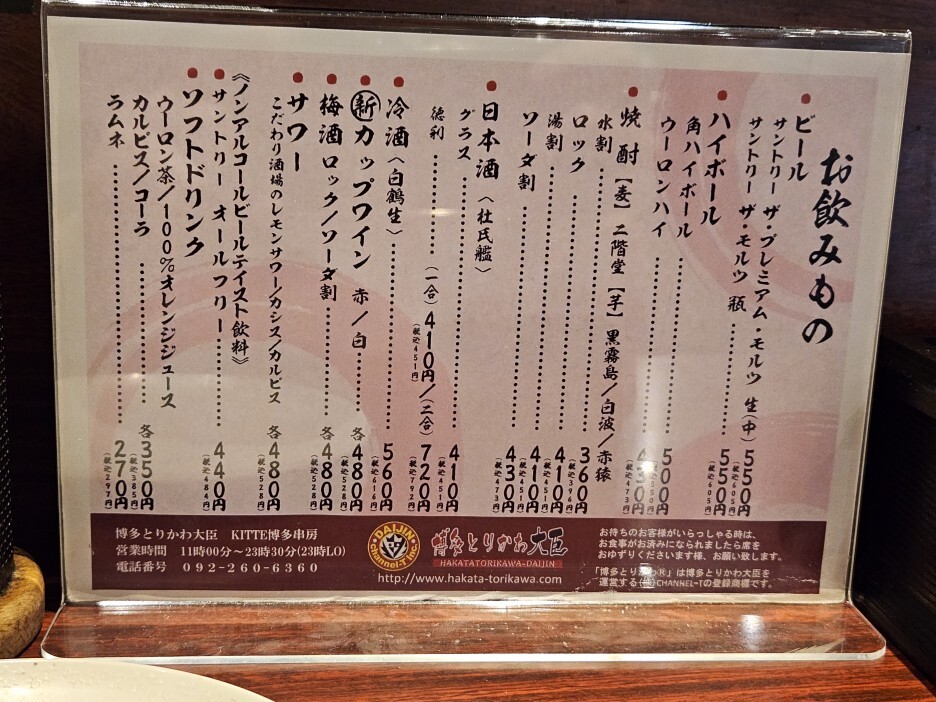 お飲みもの
ビール
サントリー ザ・プレミアム・モルツ 生(中) 550円
(税込605円)
サントリー ザ・モルツ 瓶 550円
(税込605円)
ハイボール
角ハイボール 500円
(税込550円)
ウーロンハイ 430円
(税込473円)
焼酎【麦】二階堂【芋】黒霧島/白波/赤猿
水割
ロック 360円
(税込396円)
湯割 410円
(税込451円)
ソーダ割 430円
(税込473円)
日本酒〈杜氏鑑〉
グラス 410円
(税込451円)
徳利 (一合)410円/(二合)720円
(税込451円) (税込792円)
冷酒〈白鶴生〉 560円
(税込616円)
新カップワイン 赤/白 各480円
(税込528円)
梅酒ロック/ソーダ割 各480円
(税込528円)
サワー
こだわり酒場のレモンサワー/カシス/カルピス 各480円
(税込528円)
《ノンアルコールビールテイスト飲料》
サントリー オールフリー 440円
(税込484円)
ソフトドリンク
ウーロン茶/100%オレンジジュース
カルピス/コーラ 各350円
(税込385円)
ラムネ 270円
(税込297円)
博多とりかわ大臣 KITTE博多串房
営業時間 11時00分～23時30分(23時LO)
電話番号 092-260-6360
DAIJIN
CHANNEL-T Inc.
博多とりかわ大臣
HAKATATORIKAWA-DAIJIN
http://www.hakata-torikawa.com
お待ちのお客様がいらっしゃる時は、
お食事がお済みになられましたら席を
おゆずりくださいます様、お願い致します。
「博多とりかわ®」は博多とりかわ大臣を
運営する(株)CHANNEL-Tの登録商標です。